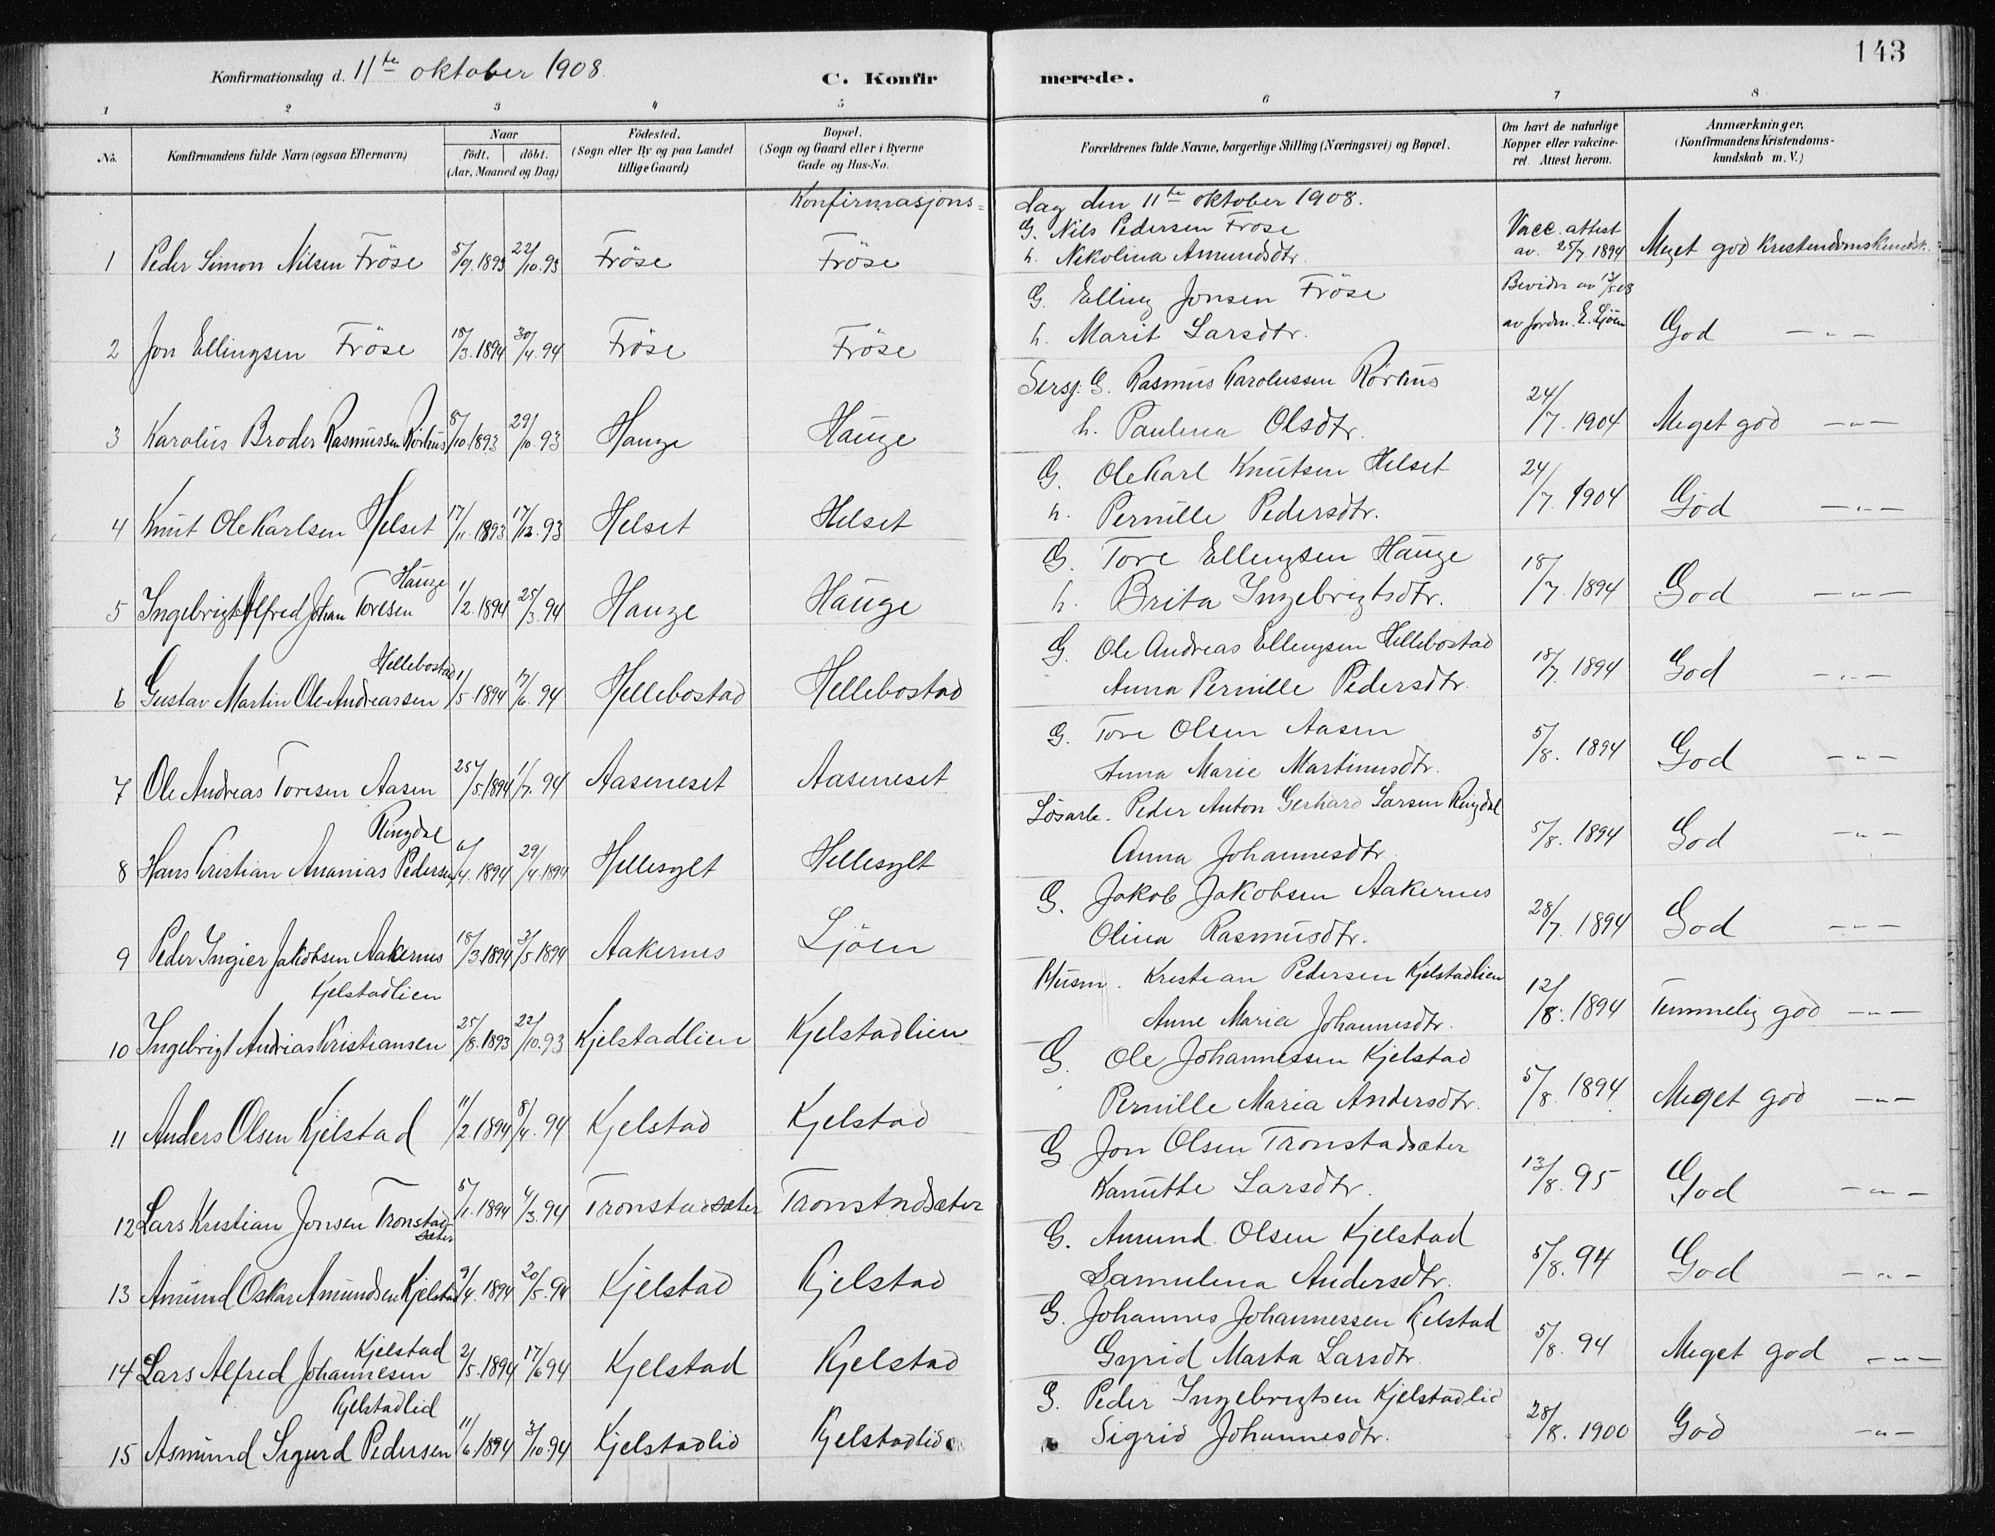 143
Konfirmationsdag d. 11te oktober 1908.
C. Konfirmerede.
1 2 3 4 5 6 7 8
No. Konfirmandens fulde Navn (ogsaa Efternavn) Naar födt. döbt. (Aar, Maaned og Dag) Födested. (Sogn eller By og paa Landet tillige Gaard) Bopæl. (Sogn og Gaard eller i Byerne Gade og Hus-No. Forældrenes fulde Navne, borgerlige Stilling (Næringsvei) og Bopæl. Om havt de naturlige Kopper eller vakcineret. Attest herom. Anmærkninger. (Konfirmandens Kristendomskundskab m. V.)
Konfirmasjons=dag den 11te oktober 1908.
1 Peder Simon Nilsen Fröse 5/9.1893 22/10.93 Fröse Fröse G. Nils Pedersen Fröse
h. Nikolina Amundsdtr. Vacc. attest av. 25/7.1894 Meget god Kristendomskundsk.
2 Jon Ellingsen Fröse 18/3.1894 30/4.94 Fröse Fröse G. Elling Jonsen Fröse
h. Marit Larsdtr. av jordm. E. Ljöen God —"—
3 Karolus Broder Rasmussen Rörhus 8/10.1893 29/10.93 Hauge Hauge Sersj. G. Rasmus Karolussen Rörhus
h. Paulina Olsdtr. 24/7.1904 Meget god —"—
4 Knut OleKarlsen Helset 17/11.1893 17/12.93 Helset Helset G. OleKarl Knutsen Helset
h. Pernille Pedersdtr. 24/7.1904 God —"—
Hauge
5 Ingebrigt Alfred Johan Toresen 1/2.1894 25/3.94 Hauge Hauge G. Tore Ellingsen Hauge
h. Brita Ingebrigtsdtr. 18/7.1894 God —"—
Hellebostad
6 Gustav Martin Ole-Andreassen 1/5.1894 17/6.94 Hellebostad Hellebostad G. Ole Andreas Ellingsen Hellebostad
Anna Pernille Pedersdtr. 18/7.1894 God —"—
7 Ole Andreas Toresen Aasen 25/5.1894 1/7.94 Aaseneset Aaseneset G. Tore Olsen Aasen
Anna Marie Martinusdtr. 5/8.1894 God —"—
Ringdal
8 Hans Kristian Ananias Pedersen 6/4.1894 29/4.1894 Hellesylt Hellesylt Lösarb. Peder Anton Gerhard Larsen Ringdal
Anna Johannesdtr. 5/8.1894 God —"—
9 Peder Ingier Jakobsen Aakernes 18/3.1894 3/5.1894 Aakernes Ljöen G. Jakob Jakobsen Aakernes
Olina Rasmusdtr. 28/7.1894 God —"—
Kjelstadlien
10 Ingebrigt Andrias Kristiansen 25/8.1893 22/10.93 Kjelstadlien Kjelstadlien Husm. Kristian Pedersen Kjelstadlien
Anne Maria Johannesdtr. 12/8.1894 Temmelig god —"—
11 Anders Olsen Kjelstad 11/2.1894 8/4.94 Kjelstad Kjelstad G. Ole Johannessen Kjelstad
Pernille Maria Andersdtr. 5/8.1894 Meget god —"—
12 Lars Kristian Jonsen Tronstad
sæter 5/1.1894 4/3.94 Tronstadsæter Tronstadsæter G Jon Olsen Tronstadsæter
Kanutte Larsdtr. 13/8.95 God —"—
13 Amund Oskar Amundsen Kjelstad 9/4.1894 20/5.94 Kjelstad Kjelstad G. Amund Olsen Kjelstad
Samulina Andersdtr. 5/8.94 God —"—
Kjelstad
14 Lars Alfred Johannesen 2/5.1894 17/6 94 Kjelstad Kjelstad G. Johannes Johannessen Kjelstad
Gyrid Marta Larsdtr. 5/8.94 Meget god —"—
Kjelstadlid
15 Asmund Sigurd Pedersen 11/6.1894 3/10.94 Kjelstadlid Kjelstadlid G. Peder Ingebrigtsen Kjelstadlid
Sigrid Johannesdtr. 28/8.1900 God —"—